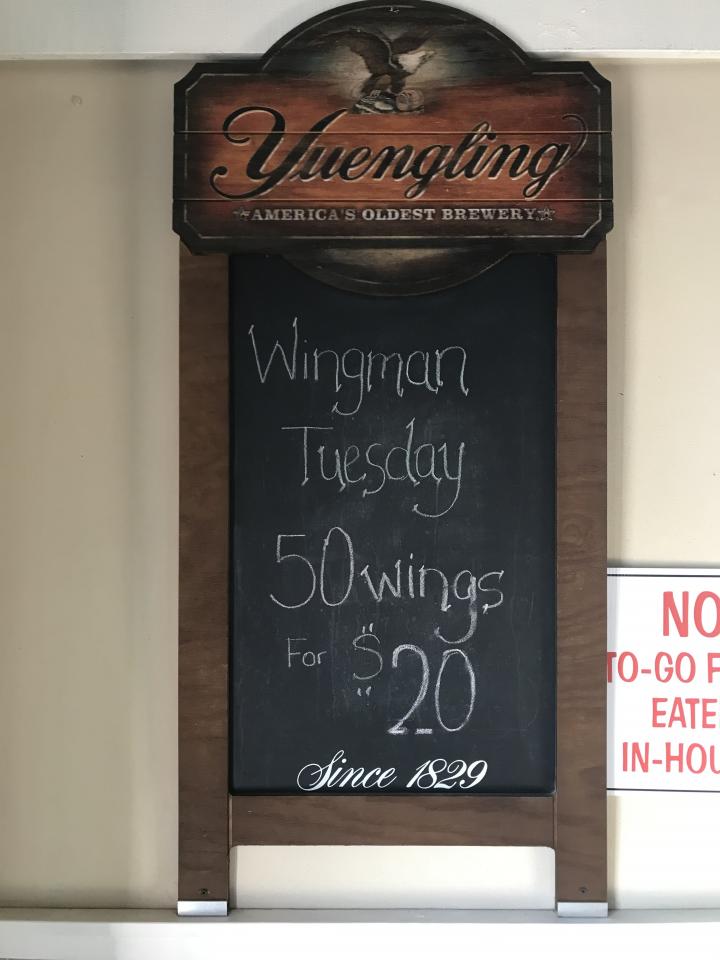 Yuengling
AMERICA'S OLDEST BREWERY
Wingman
Tuesday
50 wings
For $20
Since 1829
NO
TO-GO
EATE
IN-HOU